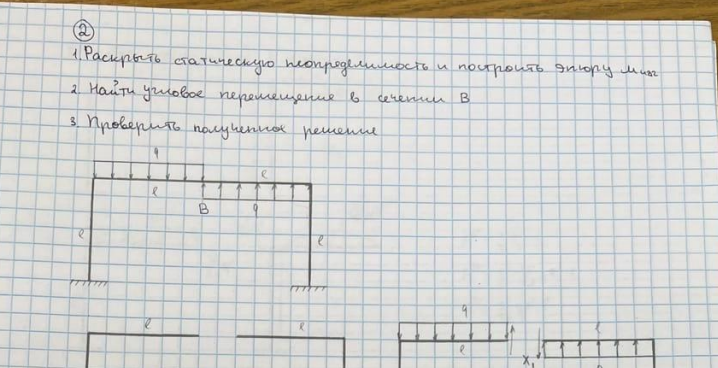 2
1. Раскрыть статическую неопределимость и построить эпюру Mизг
2. Найти угловое перемещение в сечении B
3. Проверить полученное решение
q
l l
B q
l l
q
l l l
X1